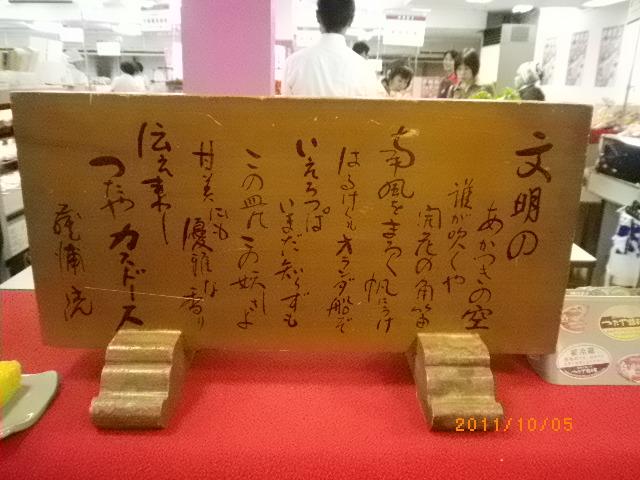 文明の
あかつきの空
誰が吹くや
開花の角笛
南風をまろく帆にうけ
はるけくもオランダ船で
いえろっぱ
いまだ知らずも
この皿のこの妖しさよ
甘美にも
優雅な香り
伝え来し
つたや カスドース
2011/10/05